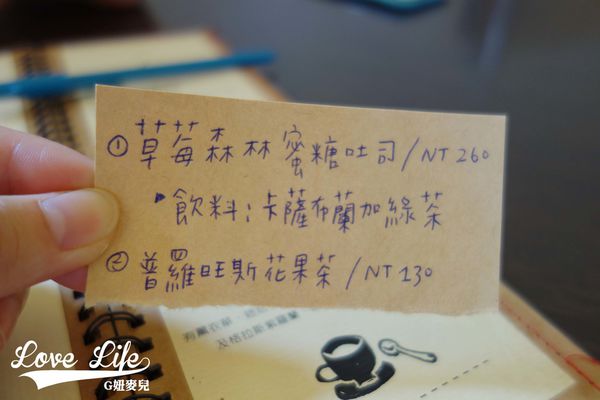 ① 草莓森林蜜糖吐司/NT 260
• 飲料:卡薩布蘭加綠茶
② 普羅旺斯花果茶/NT 130
及格拉斯紫羅蘭
Love Life
G妞麥兒